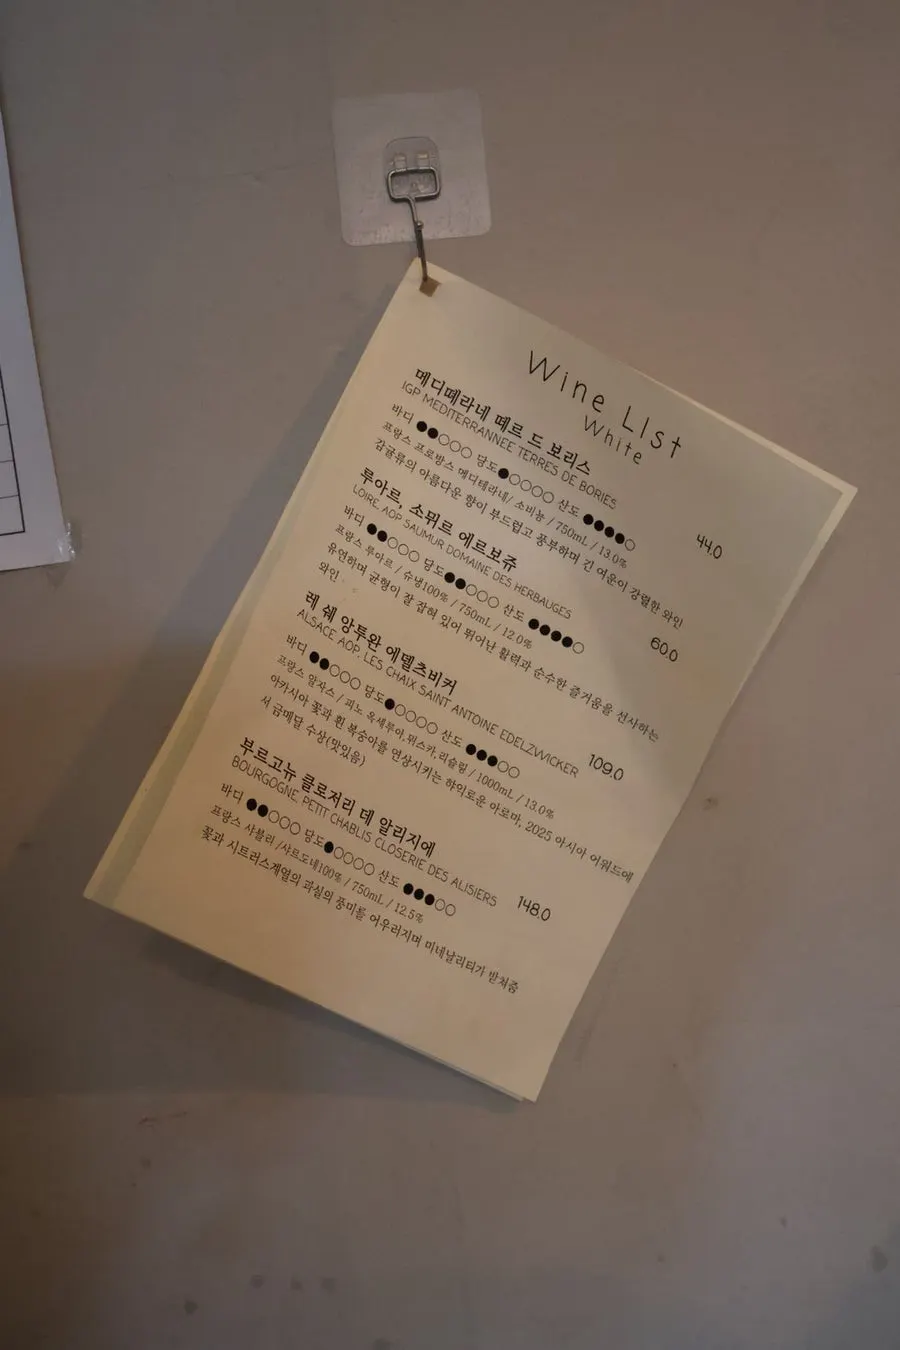 Wine List
White
메디떼라네 떼르 드 보리스
IGP MEDITERRANNEE TERRES DE BORIES
바디 ●●○○○ 당도●○○○○ 산도 ●●●●○
44.0
프랑스 프로방스 메디테라네/ 소비뇽 / 750mL / 13.0%
감귤류의 아름다운 향이 부드럽고 풍부하며 긴 여운이 강렬한 와인
루아르, 소뮈르 에르보쥬
LOIRE, AOP SAUMUR DOMAINE DES HERBAUGES
바디 ●●○○○ 당도●●○○○ 산도 ●●●●○
60.0
프랑스 루아르 / 슈냉100% / 750mL / 12.0%
유연하며 균형이 잘 잡혀 있어 뛰어난 활력과 순수한 즐거움을 선사하는
와인
레 쉐 앙투완 에델츠비커
ALSACE AOP. LES CHAIX SAINT ANTOINE EDELZWICKER
109.0
바디 ●●○○○ 당도●○○○○ 산도 ●●●○○
프랑스 알자스 / 피노 옥세루아,뮈스카,리슬링 / 1000mL / 13.0%
아카시아 꽃과 흰 복숭아를 연상시키는 향익로운 아로마, 2025 아시아 어워드에
서 금메달 수상(맛있음)
부르고뉴 클로저리 데 알리지에
BOURGOGNE, PETIT CHABLIS CLOSERIE DES ALISIERS
148.0
바디 ●●○○○ 당도●○○○○ 산도 ●●●○○
프랑스 샤블리 /샤르도네100% / 750mL / 12.5%
꽃과 시트러스계열의 과실의 풍미를 어우러지며 미네날리티가 받쳐줌